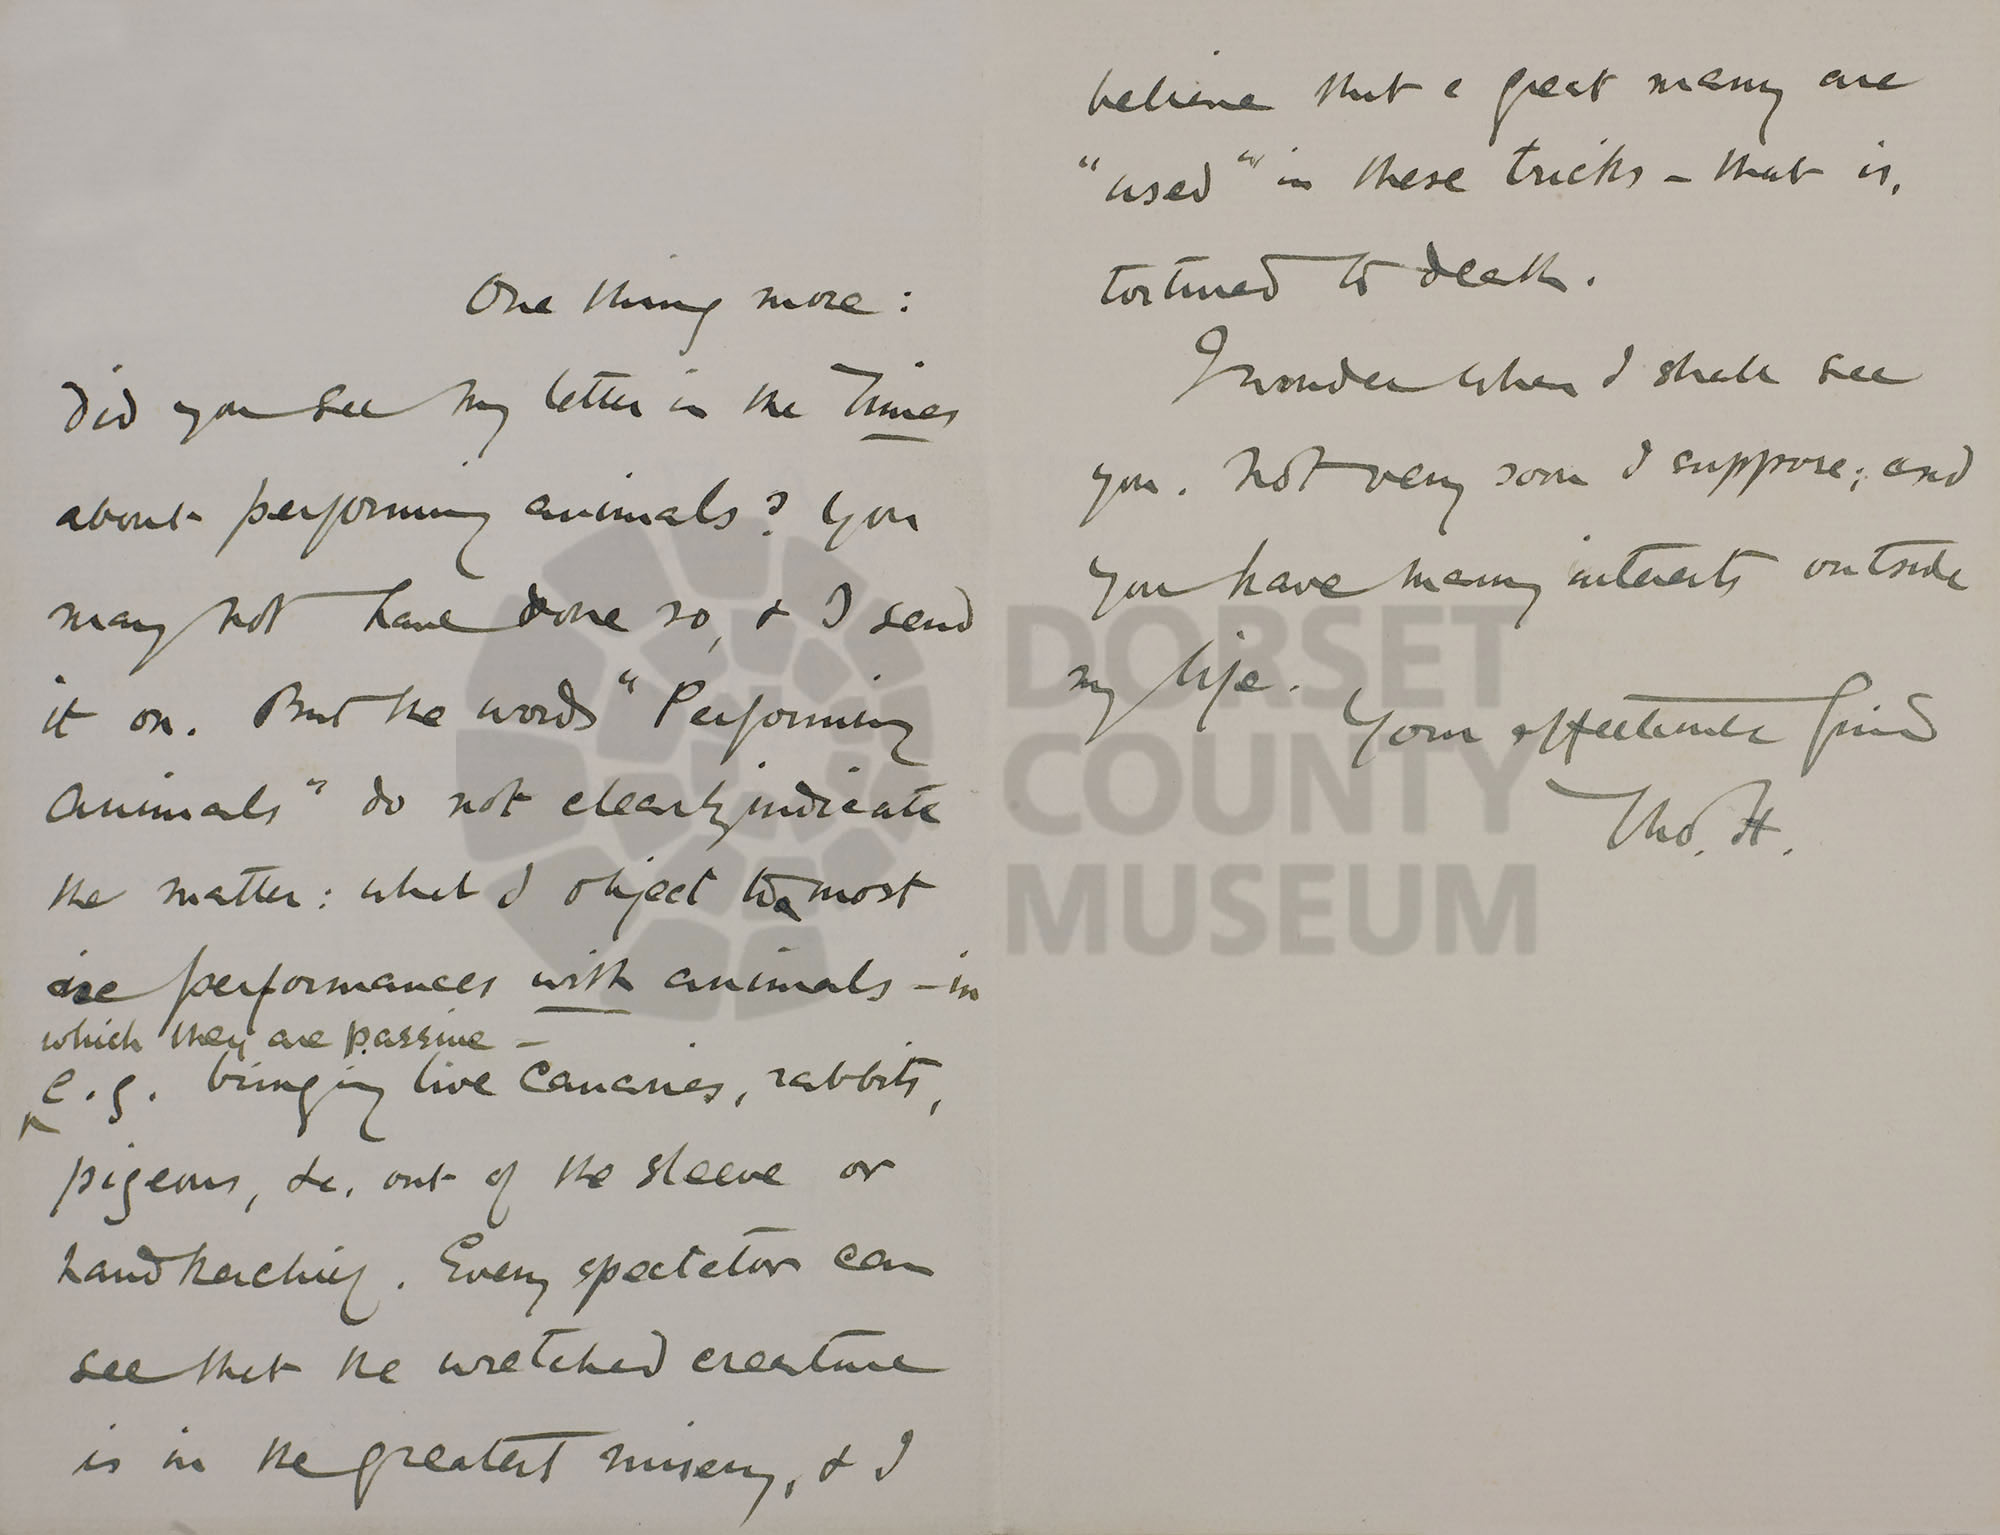 One thing more:
Did you see my letter in the Times
about performing animals? You
may not have done so, & I send
it on. But the words "Performing
Animals" do not clearly indicate
the matter: what I object to most
are performances with animals – in
which they are passive –
e.g. bringing live canaries, rabbits,
pigeons, &c. out of the sleeve or
handkerchief. Every spectator can
see that the wretched creature
is in the greatest misery, & I
believe that a great many are
"used" in these tricks – that is,
tortured to death.
I wonder when I shall see
you. Not very soon I suppose; and
you have many interests outside
my life.
Your affectionate friend
Tho. H.
DORSET
COUNTY
MUSEUM